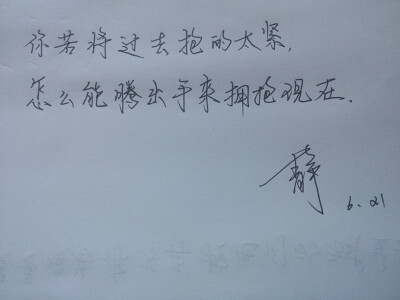 你若将过去抱的太紧,
怎么能腾出手来拥抱现在.
静
6.21